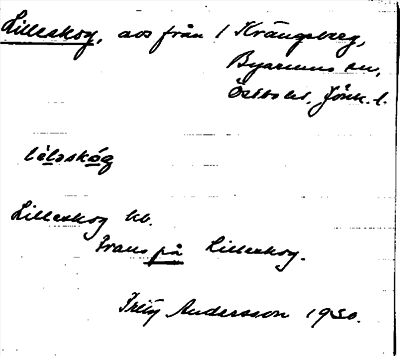 Lilleskog, avs från 1 Krängsberg,
Byarums sn,
Östbo hd, Jönk. l.
lìlǝskóg
Lilleskog kb.
Frans på Lilleskog.
Fritz Andersson 1930.